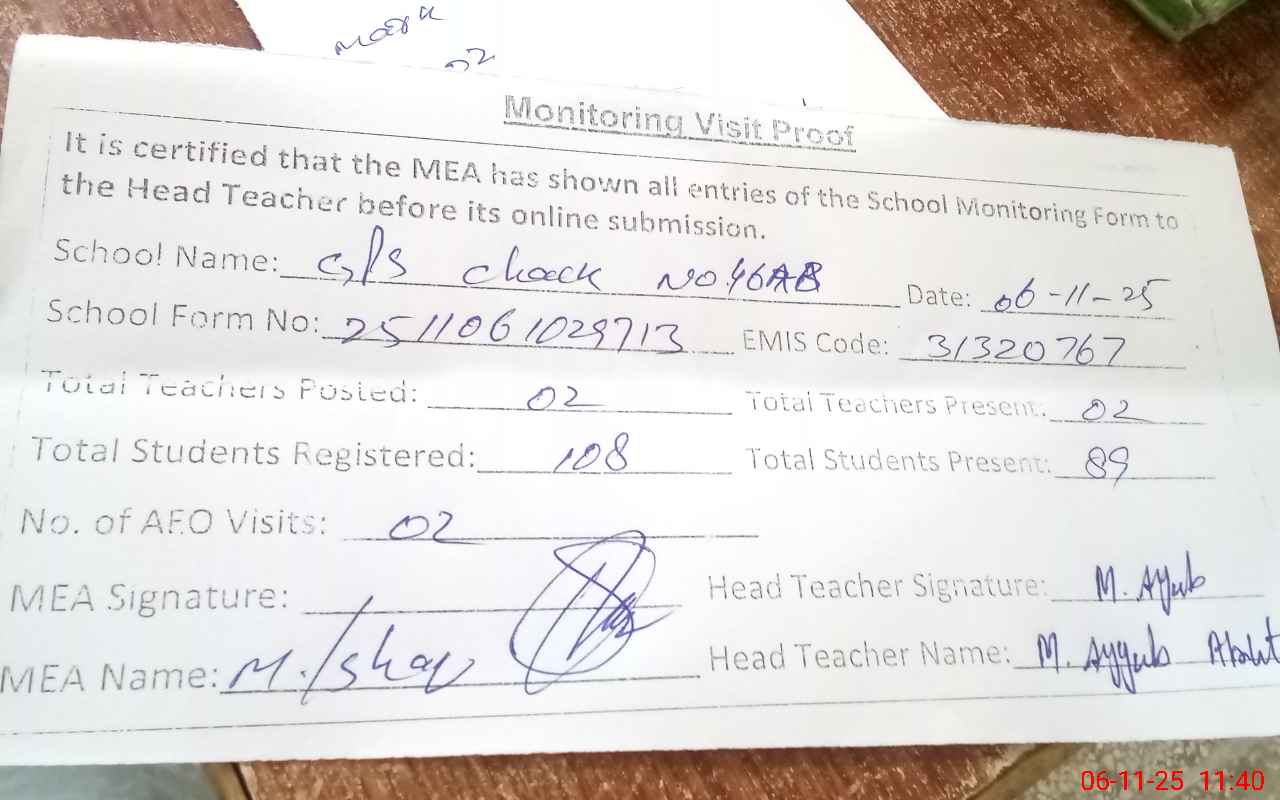 02
Monitoring Visit Proof
It is certified that the MEA has shown all entries of the School Monitoring Form to
the Head Teacher before its online submission.
School Name: G/S Chack No.46AB Date: 06-11-25
School Form No: 2511061029713 EMIS Code: 31320767
Total Teachers Posted: 02 Total Teachers Present: 02
Total Students Registered: 108 Total Students Present: 89
No. of AEO Visits: 02
MEA Signature: Head Teacher Signature: M. Ayub
MEA Name: M. Head Teacher Name: M. Ayyub
06-11-25 11:40